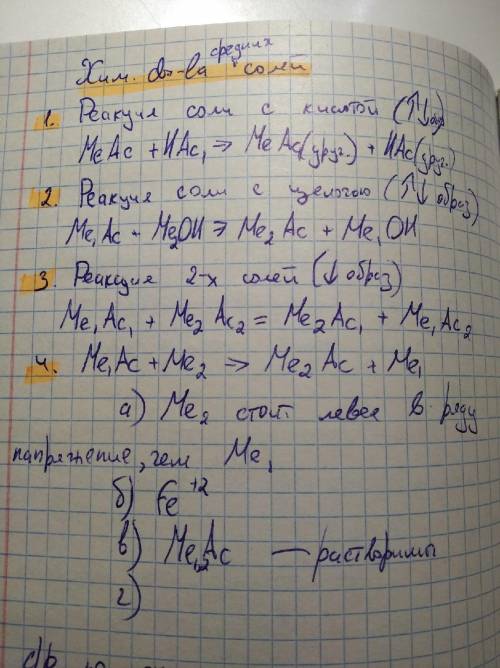 Хим. св-ва средних солей
1. Реакция соли с кислотой (↑↓ обр)
MeAc + HAc₁ → MeAc(друг.) + HAc(друг.)
2. Реакция соли с щелочью (↑↓ образ)
Me₁Ac + Me₂OH → Me₂Ac + Me₁OH
3. Реакция 2-х солей (↓ образ)
Me₁Ac₁ + Me₂Ac₂ = Me₂Ac₁ + Me₁Ac₂
4. Me₁Ac + Me₂ → Me₂Ac + Me₁
а) Me₂ стоит левее в ряду
напряжение, чем Me₁
б) Fe⁺²
в) Me₁,₂Ac — растворимы
г)